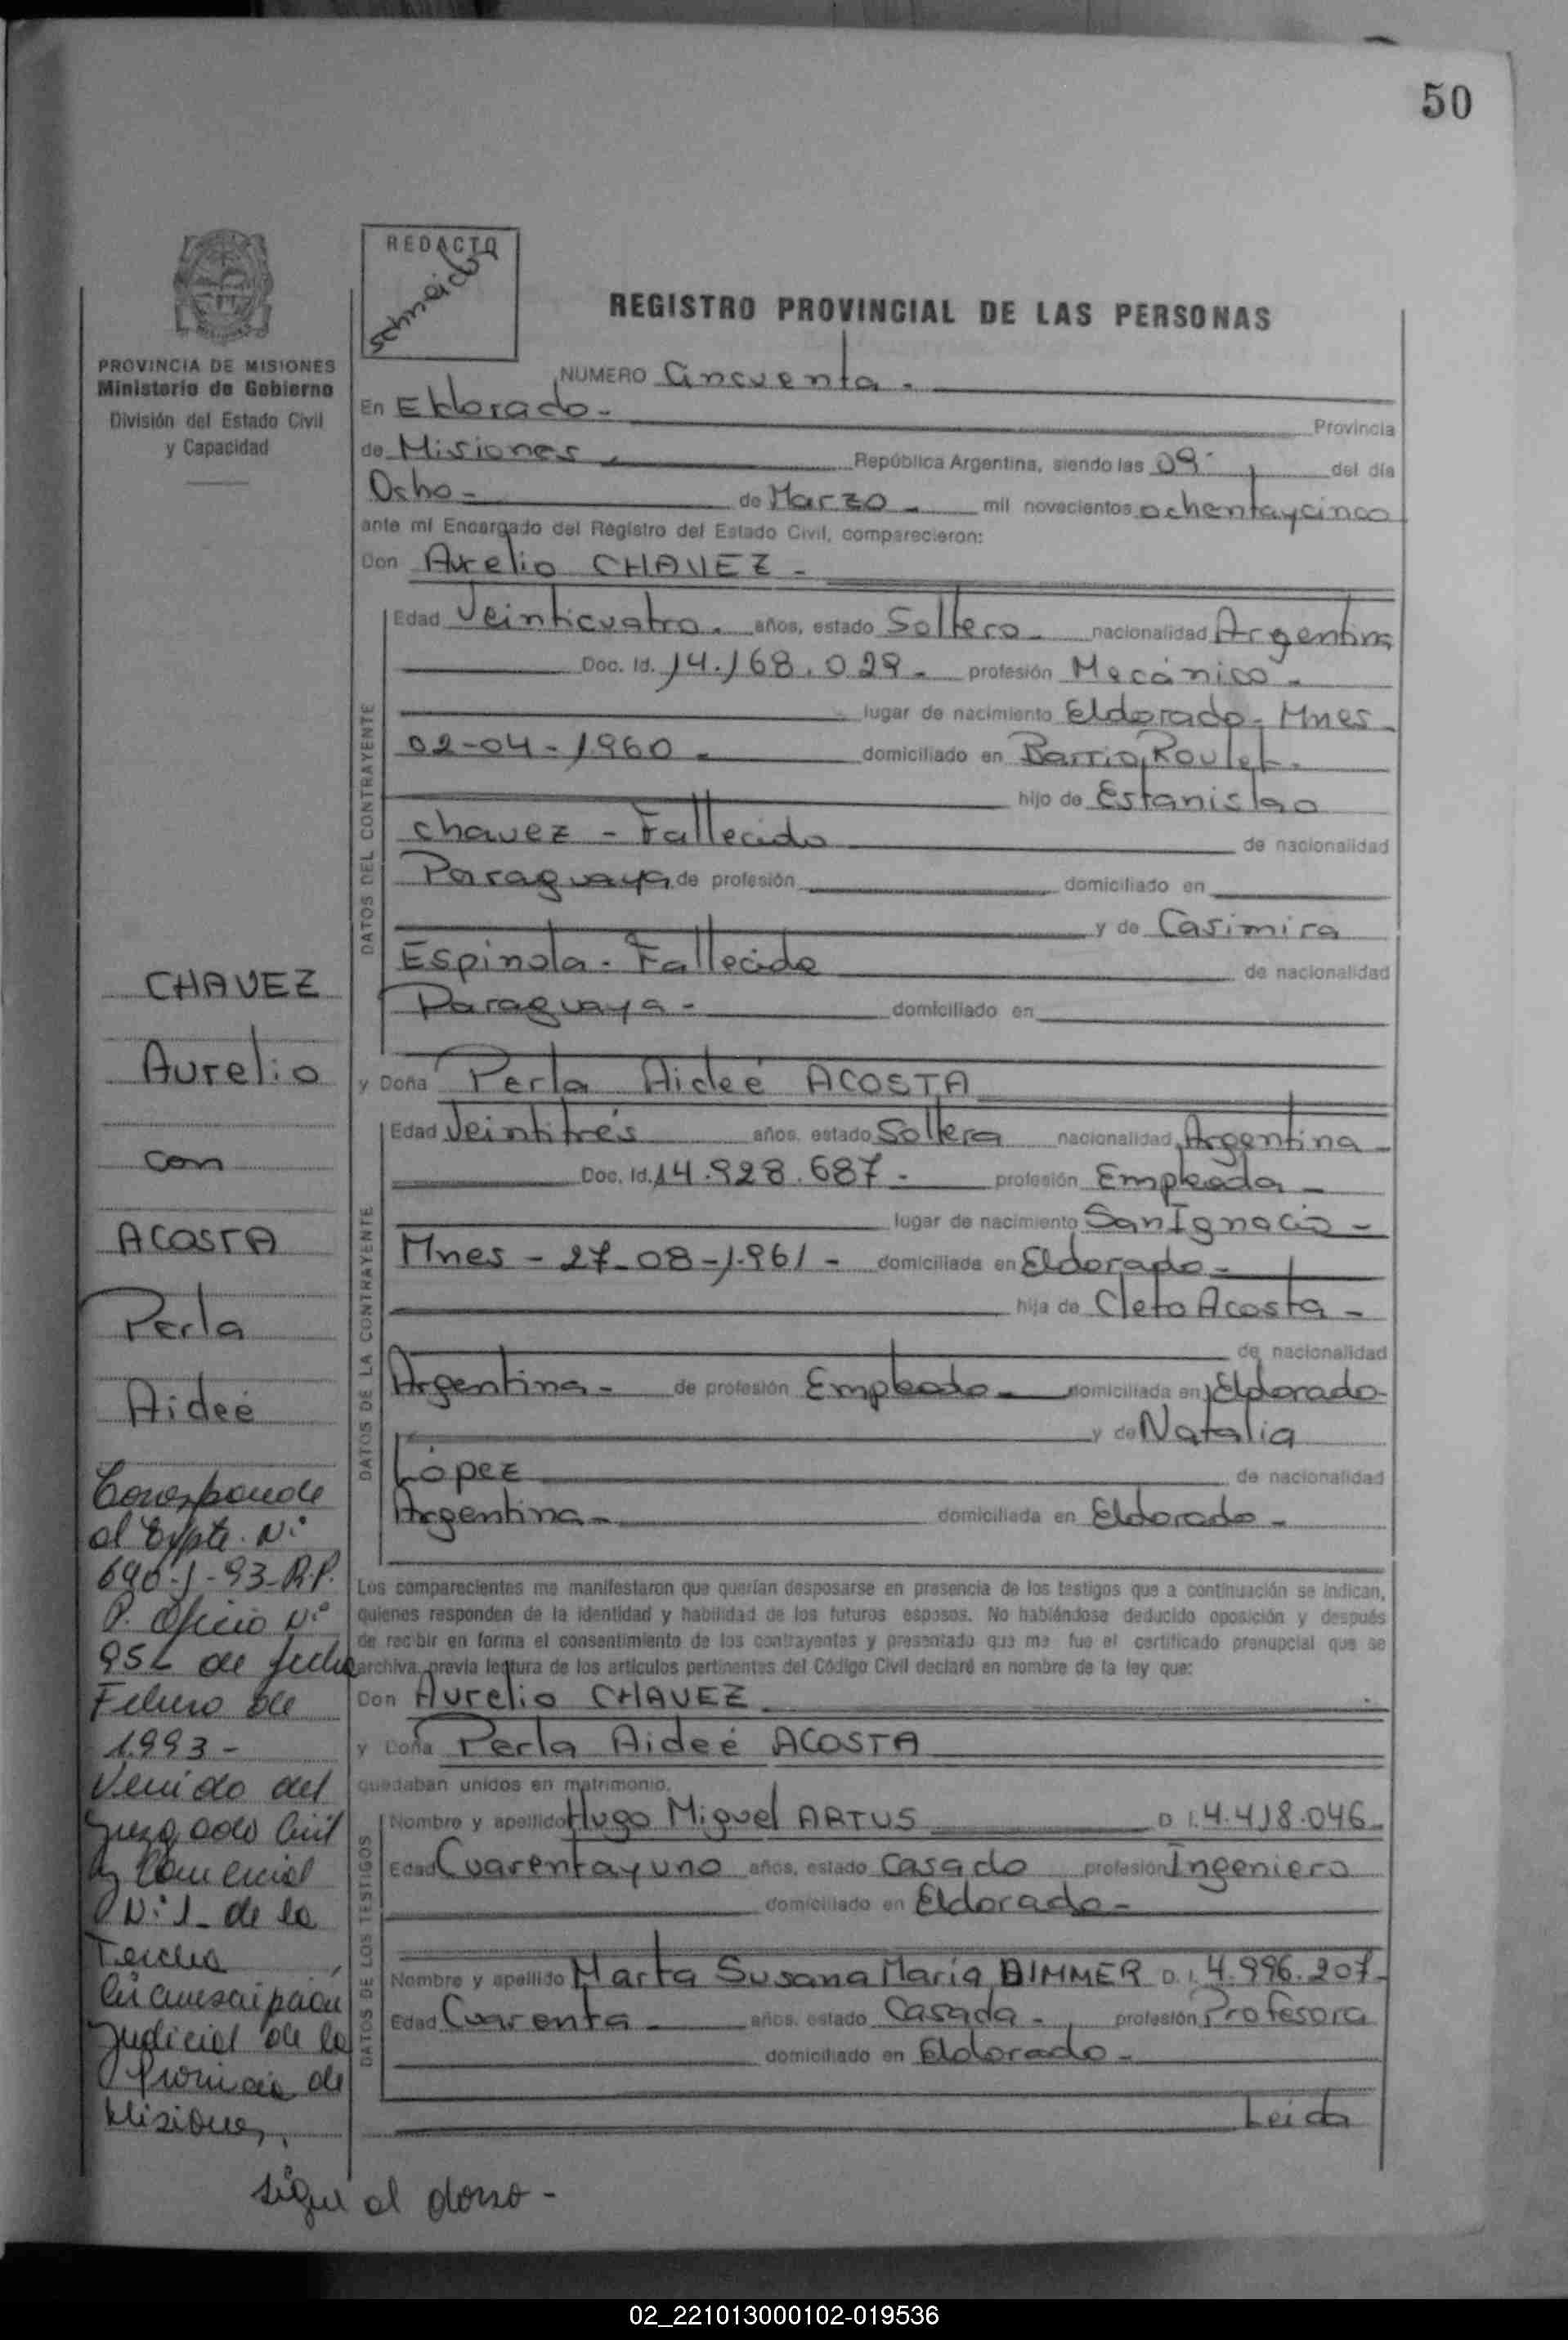 50
REDACTO
Schneider
PROVINCIA DE MISIONES
Ministerio de Gobierno
División del Estado Civil
y Capacidad
REGISTRO PROVINCIAL DE LAS PERSONAS
NUMERO Cincuenta.
En Eldorado- Provincia
de Misiones República Argentina, siendo las 09- del día
Ocho- de Marzo - mil novecientos ochentaycinco
ante mi Encargado del Registro del Estado Civil, comparecieron:
Don Aurelio CHAVEZ -
DATOS DEL CONTRAYENTE
Edad Veinticuatro. años, estado Soltero- nacionalidad Argentina
Doc. Id. 14.168.029- profesión Mecánico-
lugar de nacimiento Eldorado- Mnes-
02-04-1960- domiciliado en Barrio Roulet-
hijo de Estanislao
Chavez - Fallecido de nacionalidad
Paraguaya de profesión domiciliado en
y de Casimira
Espinola- Fallecida de nacionalidad
Paraguaya- domiciliado en
y Doña Perla Aideé ACOSTA
DATOS DE LA CONTRAYENTE
Edad Veintitrés años, estado Soltera nacionalidad Argentina-
Doc. Id. 14.928.687- profesión Empleada-
lugar de nacimiento San Ignacio-
Mnes - 27-08-1961- domiciliada en Eldorado-
hija de Cleto Acosta-
de nacionalidad
Argentina- de profesión Empleado- domiciliada en Eldorado-
y de Natalia
López de nacionalidad
Argentina- domiciliada en Eldorado-
Los comparecientes me manifestaron que querían desposarse en presencia de los testigos que a continuación se indican,
quienes responden de la identidad y habilidad de los futuros esposos. No habiéndose deducido oposición y después
de recibir en forma el consentimiento de los contrayentes y presentado que me fue el certificado prenupcial que se
archiva, previa lectura de los artículos pertinentes del Código Civil declaré en nombre de la ley que:
Con Aurelio CHAVEZ
y Doña Perla Aideé ACOSTA
quedaban unidos en matrimonio.
DATOS DE LOS TESTIGOS
Nombre y apellido Hugo Miguel ARTUS D.I. 4.418.046-
Edad Cuarentayuno años, estado Casado profesión Ingeniero
domiciliado en Eldorado-
Nombre y apellido Marta Susana María DIMMER D.I. 4.996.207-
Edad Cuarenta- años, estado Casada- profesión Profesora
domiciliado en Eldorado-
Leida
CHAVEZ
Aurelio
con
ACOSTA
Perla
Aideé
Corresponde
al Expte. Nº
690-J-93-R.P.
P. Oficio Nº
de fecha
Febrero de
1.993-
Venido del
Juzgado Civil
y Comercial
Nº 1- de la
Tercera
Circunscripción
Judicial de la
Provincia de
Misiones,
sigue al dorso-
02_221013000102-019536